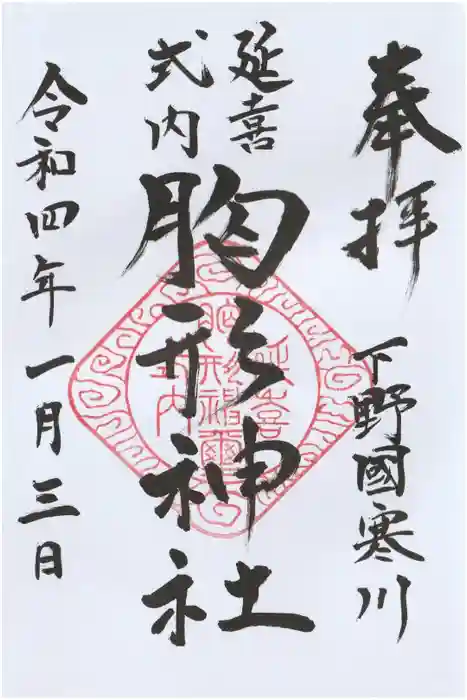 奉拝
下野國寒川
延喜
式内
胸形神社
令和四年一月三日
延喜
式内